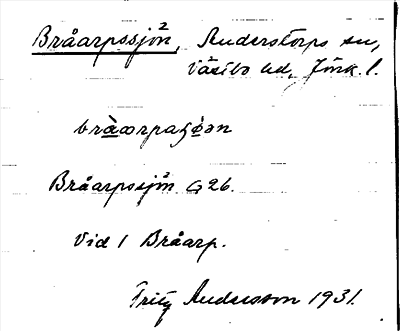 Bråarpssjön², Anderstorps sn,
Västbo hd, Jönk. l.
Bråarpssjön G 26.
Vid 1 Bråarp.
Fritz Andersson 1931.